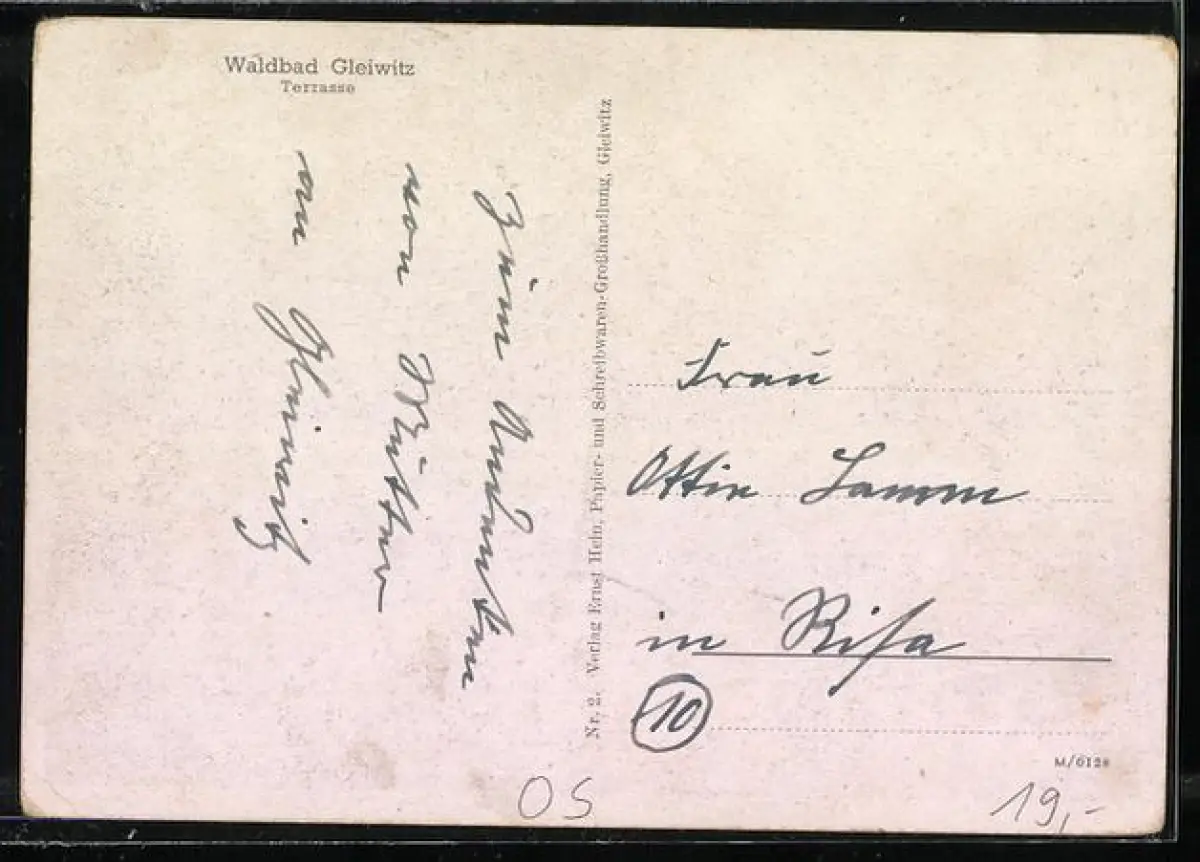 Waldbad Gleiwitz
Terrasse
Zum Andenken
von Mutter
an Gleiwitz
Nr. 2. Verlag Ernst Hein, Papier- und Schreibwaren-Großhandlung, Gleiwitz
Frau
Ottie Lamm
in Risa
10
M/0128
OS
19,-